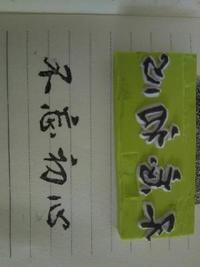 不忘初心
不忘初心